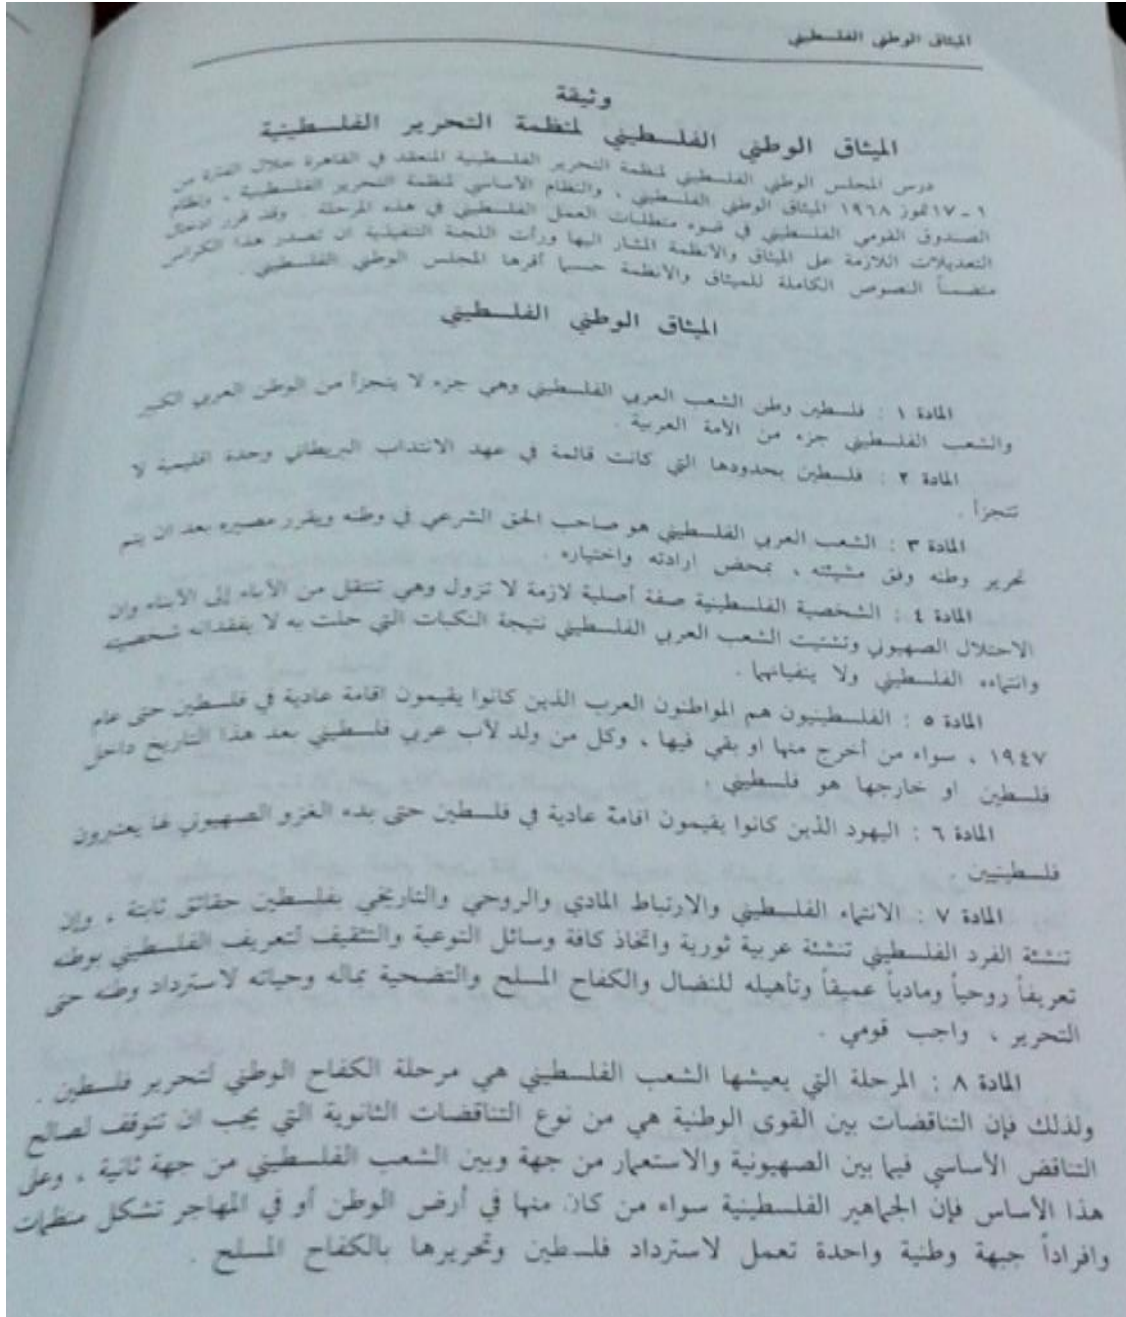 الميثاق الوطني الفلسطيني
وثيقة
الميثاق الوطني الفلسطيني لمنظمة التحرير الفلسطينية
درس المجلس الوطني الفلسطيني لمنظمة التحرير الفلسطينية المنعقد في القاهرة خلال الفترة من
١ - ١٧ تموز ١٩٦٨ الميثاق الوطني الفلسطيني ، والنظام الأساسي لمنظمة التحرير الفلسطينية ، ونظام
الصندوق القومي الفلسطيني في ضوء متطلبات العمل الفلسطيني في هذه المرحلة . وقد قرر ادخال
التعديلات اللازمة على الميثاق والانظمة المشار اليها ورأت اللجنة التنفيذية ان تصدر هذا الكراس
متضمناً النصوص الكاملة للميثاق والانظمة حسبما أقرها المجلس الوطني الفلسطيني .
الميثاق الوطني الفلسطيني
المادة ١ : فلسطين وطن الشعب العربي الفلسطيني وهي جزء لا يتجزأ من الوطن العربي الكبير
والشعب الفلسطيني جزء من الأمة العربية .
المادة ٢ : فلسطين بحدودها التي كانت قائمة في عهد الانتداب البريطاني وحدة اقليمية لا
تتجزأ .
المادة ٣ : الشعب العربي الفلسطيني هو صاحب الحق الشرعي في وطنه ويقرر مصيره بعد ان يتم
تحرير وطنه وفق مشيئته ، بمحض ارادته واختياره .
المادة ٤ : الشخصية الفلسطينية صفة أصلية لازمة لا تزول وهي تنتقل من الآباء إلى الأبناء وان
الاحتلال الصهيوني وتشتيت الشعب العربي الفلسطيني نتيجة النكبات التي حلت به لا يفقدانه شخصيته
وانتماءه الفلسطيني ولا ينفيانهما .
المادة ٥ : الفلسطينيون هم المواطنون العرب الذين كانوا يقيمون اقامة عادية في فلسطين حتى عام
١٩٤٧ ، سواء من أخرج منها او بقي فيها ، وكل من ولد لأب عربي فلسطيني بعد هذا التاريخ داخل
فلسطين او خارجها هو فلسطيني .
المادة ٦ : اليهود الذين كانوا يقيمون اقامة عادية في فلسطين حتى بدء الغزو الصهيوني لها يعتبرون
فلسطينيين .
المادة ٧ : الانتماء الفلسطيني والارتباط المادي والروحي والتاريخي بفلسطين حقائق ثابتة ، وإن
تنشئة الفرد الفلسطيني تنشئة عربية ثورية واتخاذ كافة وسائل التوعية والتثقيف لتعريف الفلسطيني بوطنه
تعريفاً روحياً ومادياً عميقاً وتأهيله للنضال والكفاح المسلح والتضحية بماله وحياته لاسترداد وطنه حتى
التحرير ، واجب قومي .
المادة ٨ : المرحلة التي يعيشها الشعب الفلسطيني هي مرحلة الكفاح الوطني لتحرير فلسطين .
ولذلك فإن التناقضات بين القوى الوطنية هي من نوع التناقضات الثانوية التي يجب ان تتوقف لصالح
التناقض الأساسي فيما بين الصهيونية والاستعمار من جهة وبين الشعب الفلسطيني من جهة ثانية ، وعلى
هذا الأساس فإن الجماهير الفلسطينية سواء من كان منها في أرض الوطن أو في المهاجر تشكل منظمات
وافراداً جبهة وطنية واحدة تعمل لاسترداد فلسطين وتحريرها بالكفاح المسلح .